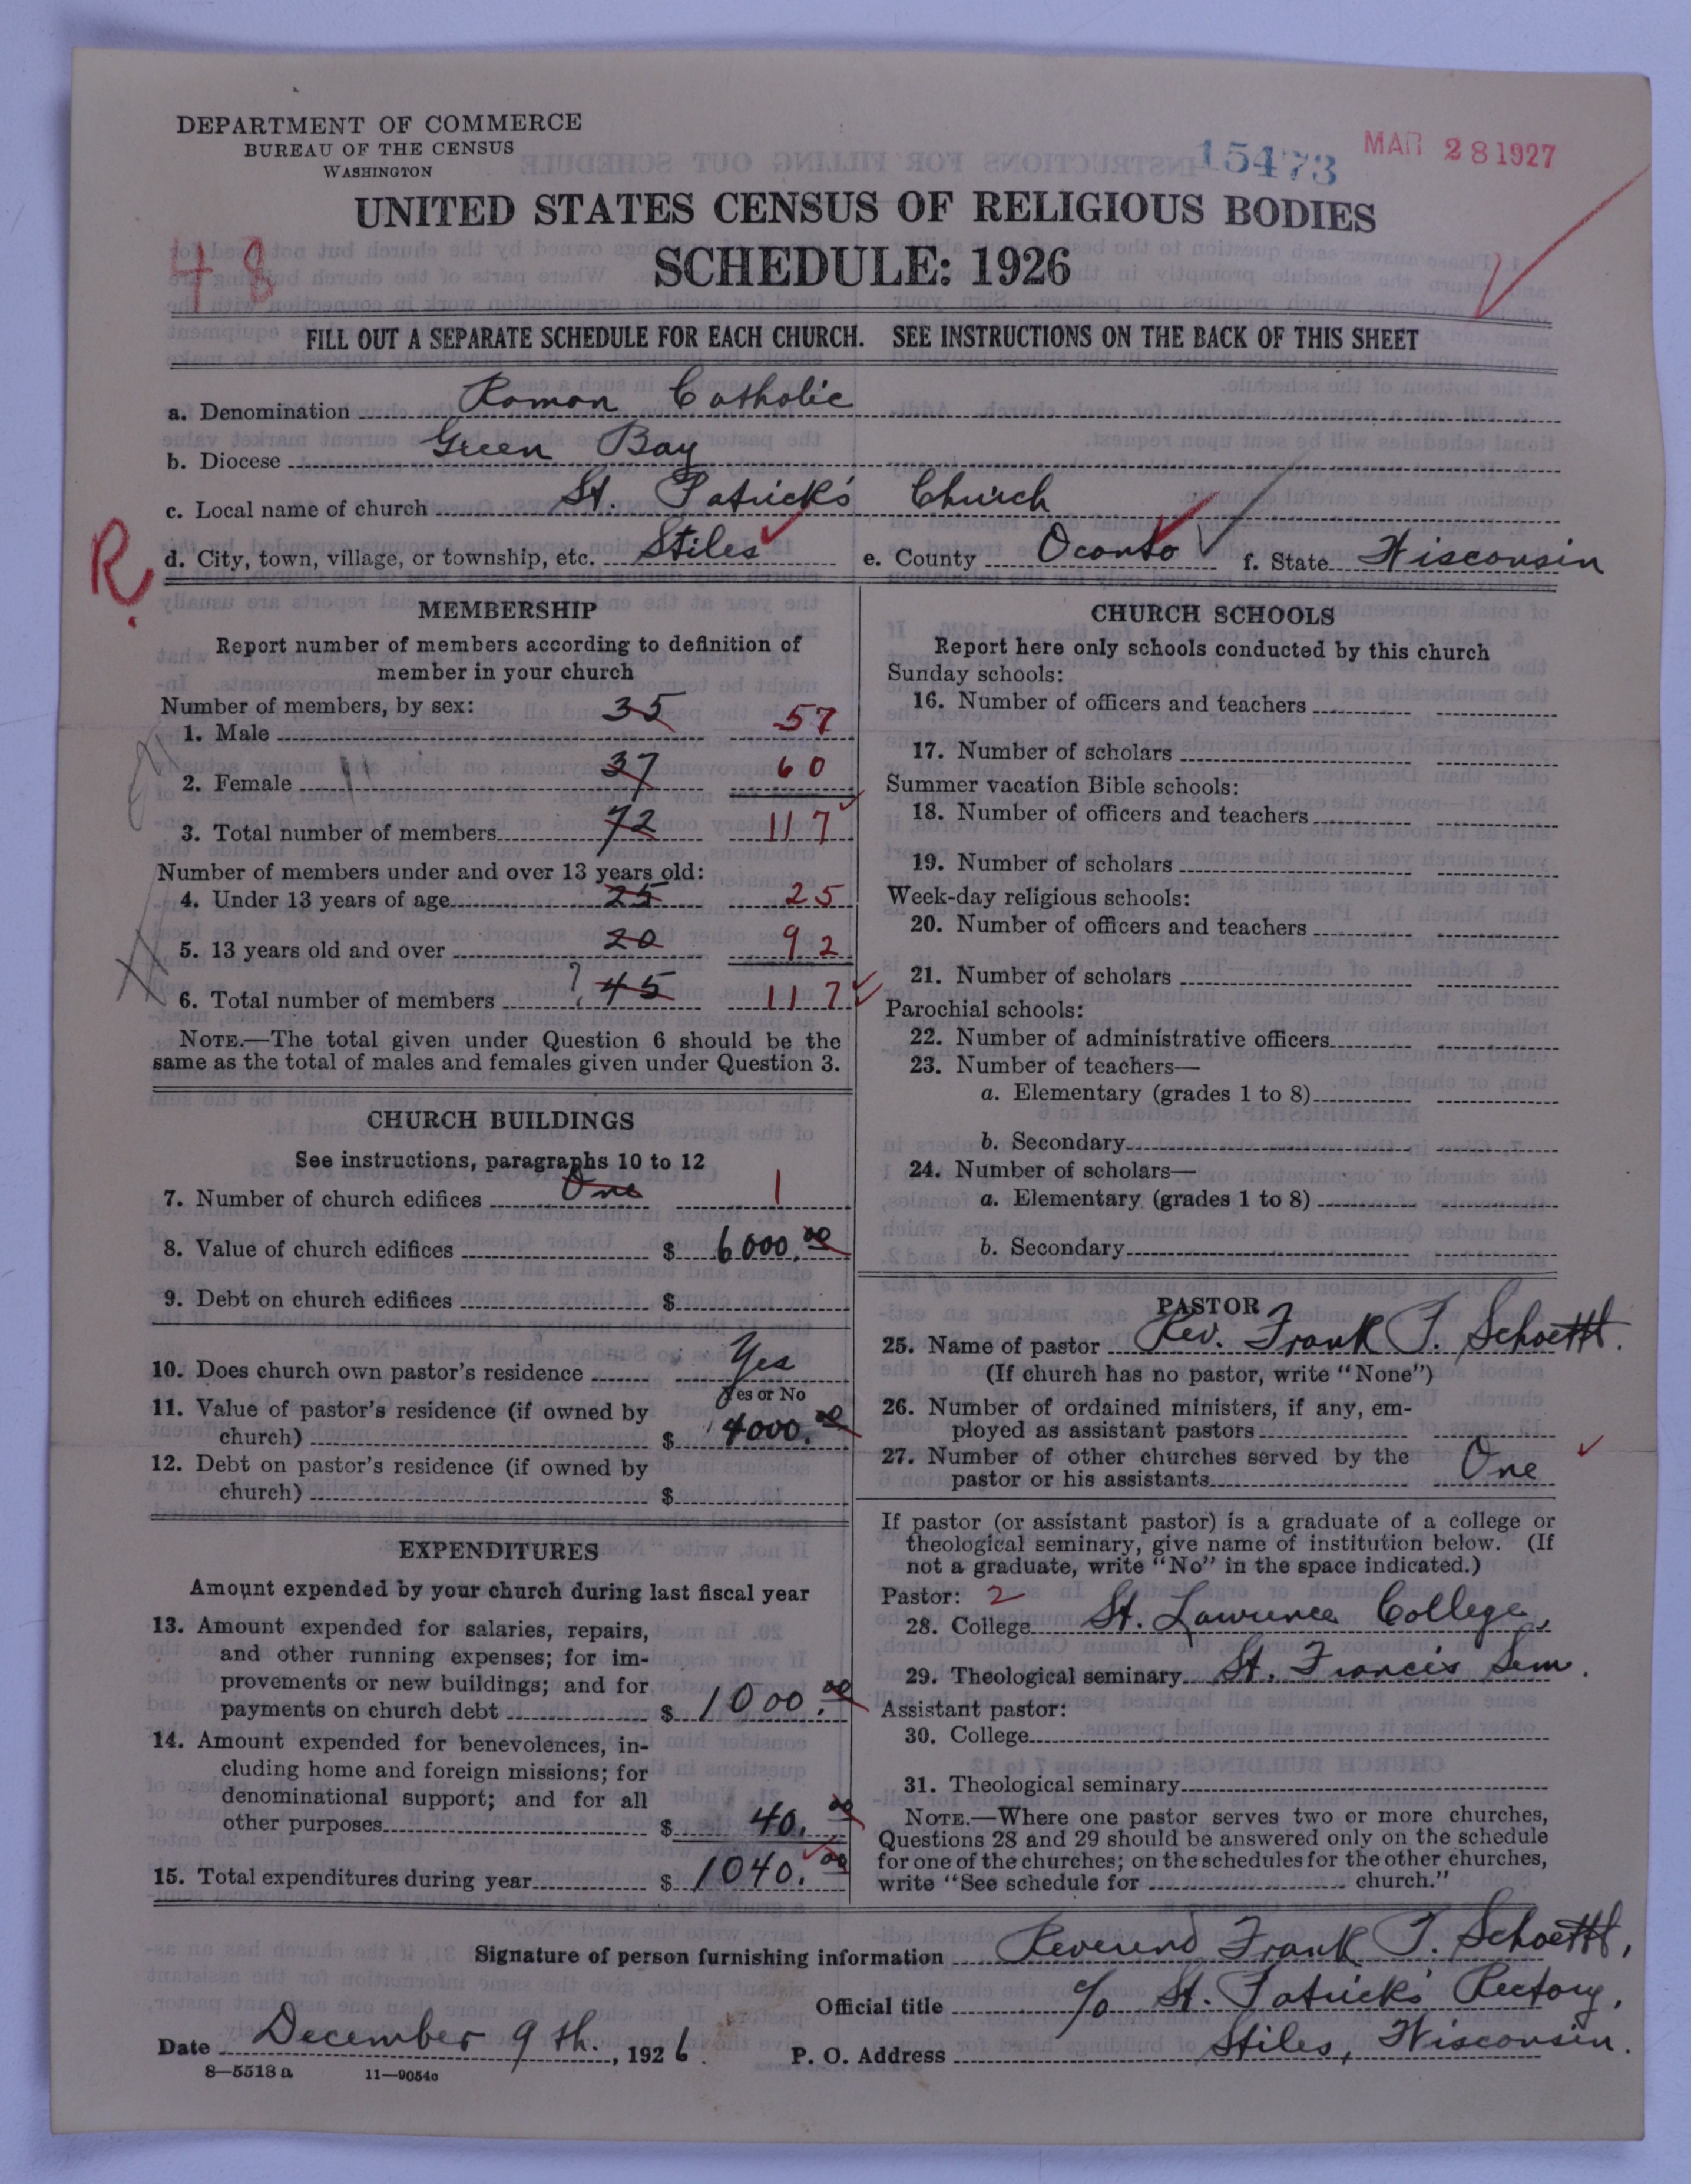 DEPARTMENT OF COMMERCE
BUREAU OF THE CENSUS
WASHINGTON
15473
MAR 28 1927
UNITED STATES CENSUS OF RELIGIOUS BODIES
SCHEDULE: 1926
48
FILL OUT A SEPARATE SCHEDULE FOR EACH CHURCH. SEE INSTRUCTIONS ON THE BACK OF THIS SHEET
a. Denomination Roman Catholic
b. Diocese Green Bay
c. Local name of church St. Patrick's Church
R. d. City, town, village, or township, etc. Stiles e. County Oconto f. State Wisconsin
MEMBERSHIP
Report number of members according to definition of
member in your church
Number of members, by sex:
1. Male 35 57
2. Female 37 60
3. Total number of members 72 117
Number of members under and over 13 years old:
4. Under 13 years of age 25 25
5. 13 years old and over 20 92
6. Total number of members ? 45 117
NOTE.—The total given under Question 6 should be the
same as the total of males and females given under Question 3.
CHURCH BUILDINGS
See instructions, paragraphs 10 to 12
7. Number of church edifices One 1
8. Value of church edifices $ 6000.00
9. Debt on church edifices $
10. Does church own pastor's residence Yes
Yes or No
11. Value of pastor's residence (if owned by
church) $ 4000.00
12. Debt on pastor's residence (if owned by
church) $
EXPENDITURES
Amount expended by your church during last fiscal year
13. Amount expended for salaries, repairs,
and other running expenses; for im-
provements or new buildings; and for
payments on church debt $ 1000.00
14. Amount expended for benevolences, in-
cluding home and foreign missions; for
denominational support; and for all
other purposes $ 40.00
15. Total expenditures during year $ 1040.00
CHURCH SCHOOLS
Report here only schools conducted by this church
Sunday schools:
16. Number of officers and teachers
17. Number of scholars
Summer vacation Bible schools:
18. Number of officers and teachers
19. Number of scholars
Week-day religious schools:
20. Number of officers and teachers
21. Number of scholars
Parochial schools:
22. Number of administrative officers
23. Number of teachers—
a. Elementary (grades 1 to 8)
b. Secondary
24. Number of scholars—
a. Elementary (grades 1 to 8)
b. Secondary
PASTOR
25. Name of pastor Rev. Frank T. Schoettl.
(If church has no pastor, write "None")
26. Number of ordained ministers, if any, em-
ployed as assistant pastors
27. Number of other churches served by the
pastor or his assistants One
If pastor (or assistant pastor) is a graduate of a college or
theological seminary, give name of institution below. (If
not a graduate, write "No" in the space indicated.)
Pastor: 2
28. College St. Lawrence College,
29. Theological seminary St. Francis Sem.
Assistant pastor:
30. College
31. Theological seminary
NOTE.—Where one pastor serves two or more churches,
Questions 28 and 29 should be answered only on the schedule
for one of the churches; on the schedules for the other churches,
write "See schedule for church."
Signature of person furnishing information Reverend Frank T. Schoettl,
Official title c/o St. Patrick's Rectory,
Date December 9th., 1926. P. O. Address Stiles, Wisconsin.
8—5518 a 11—9054c